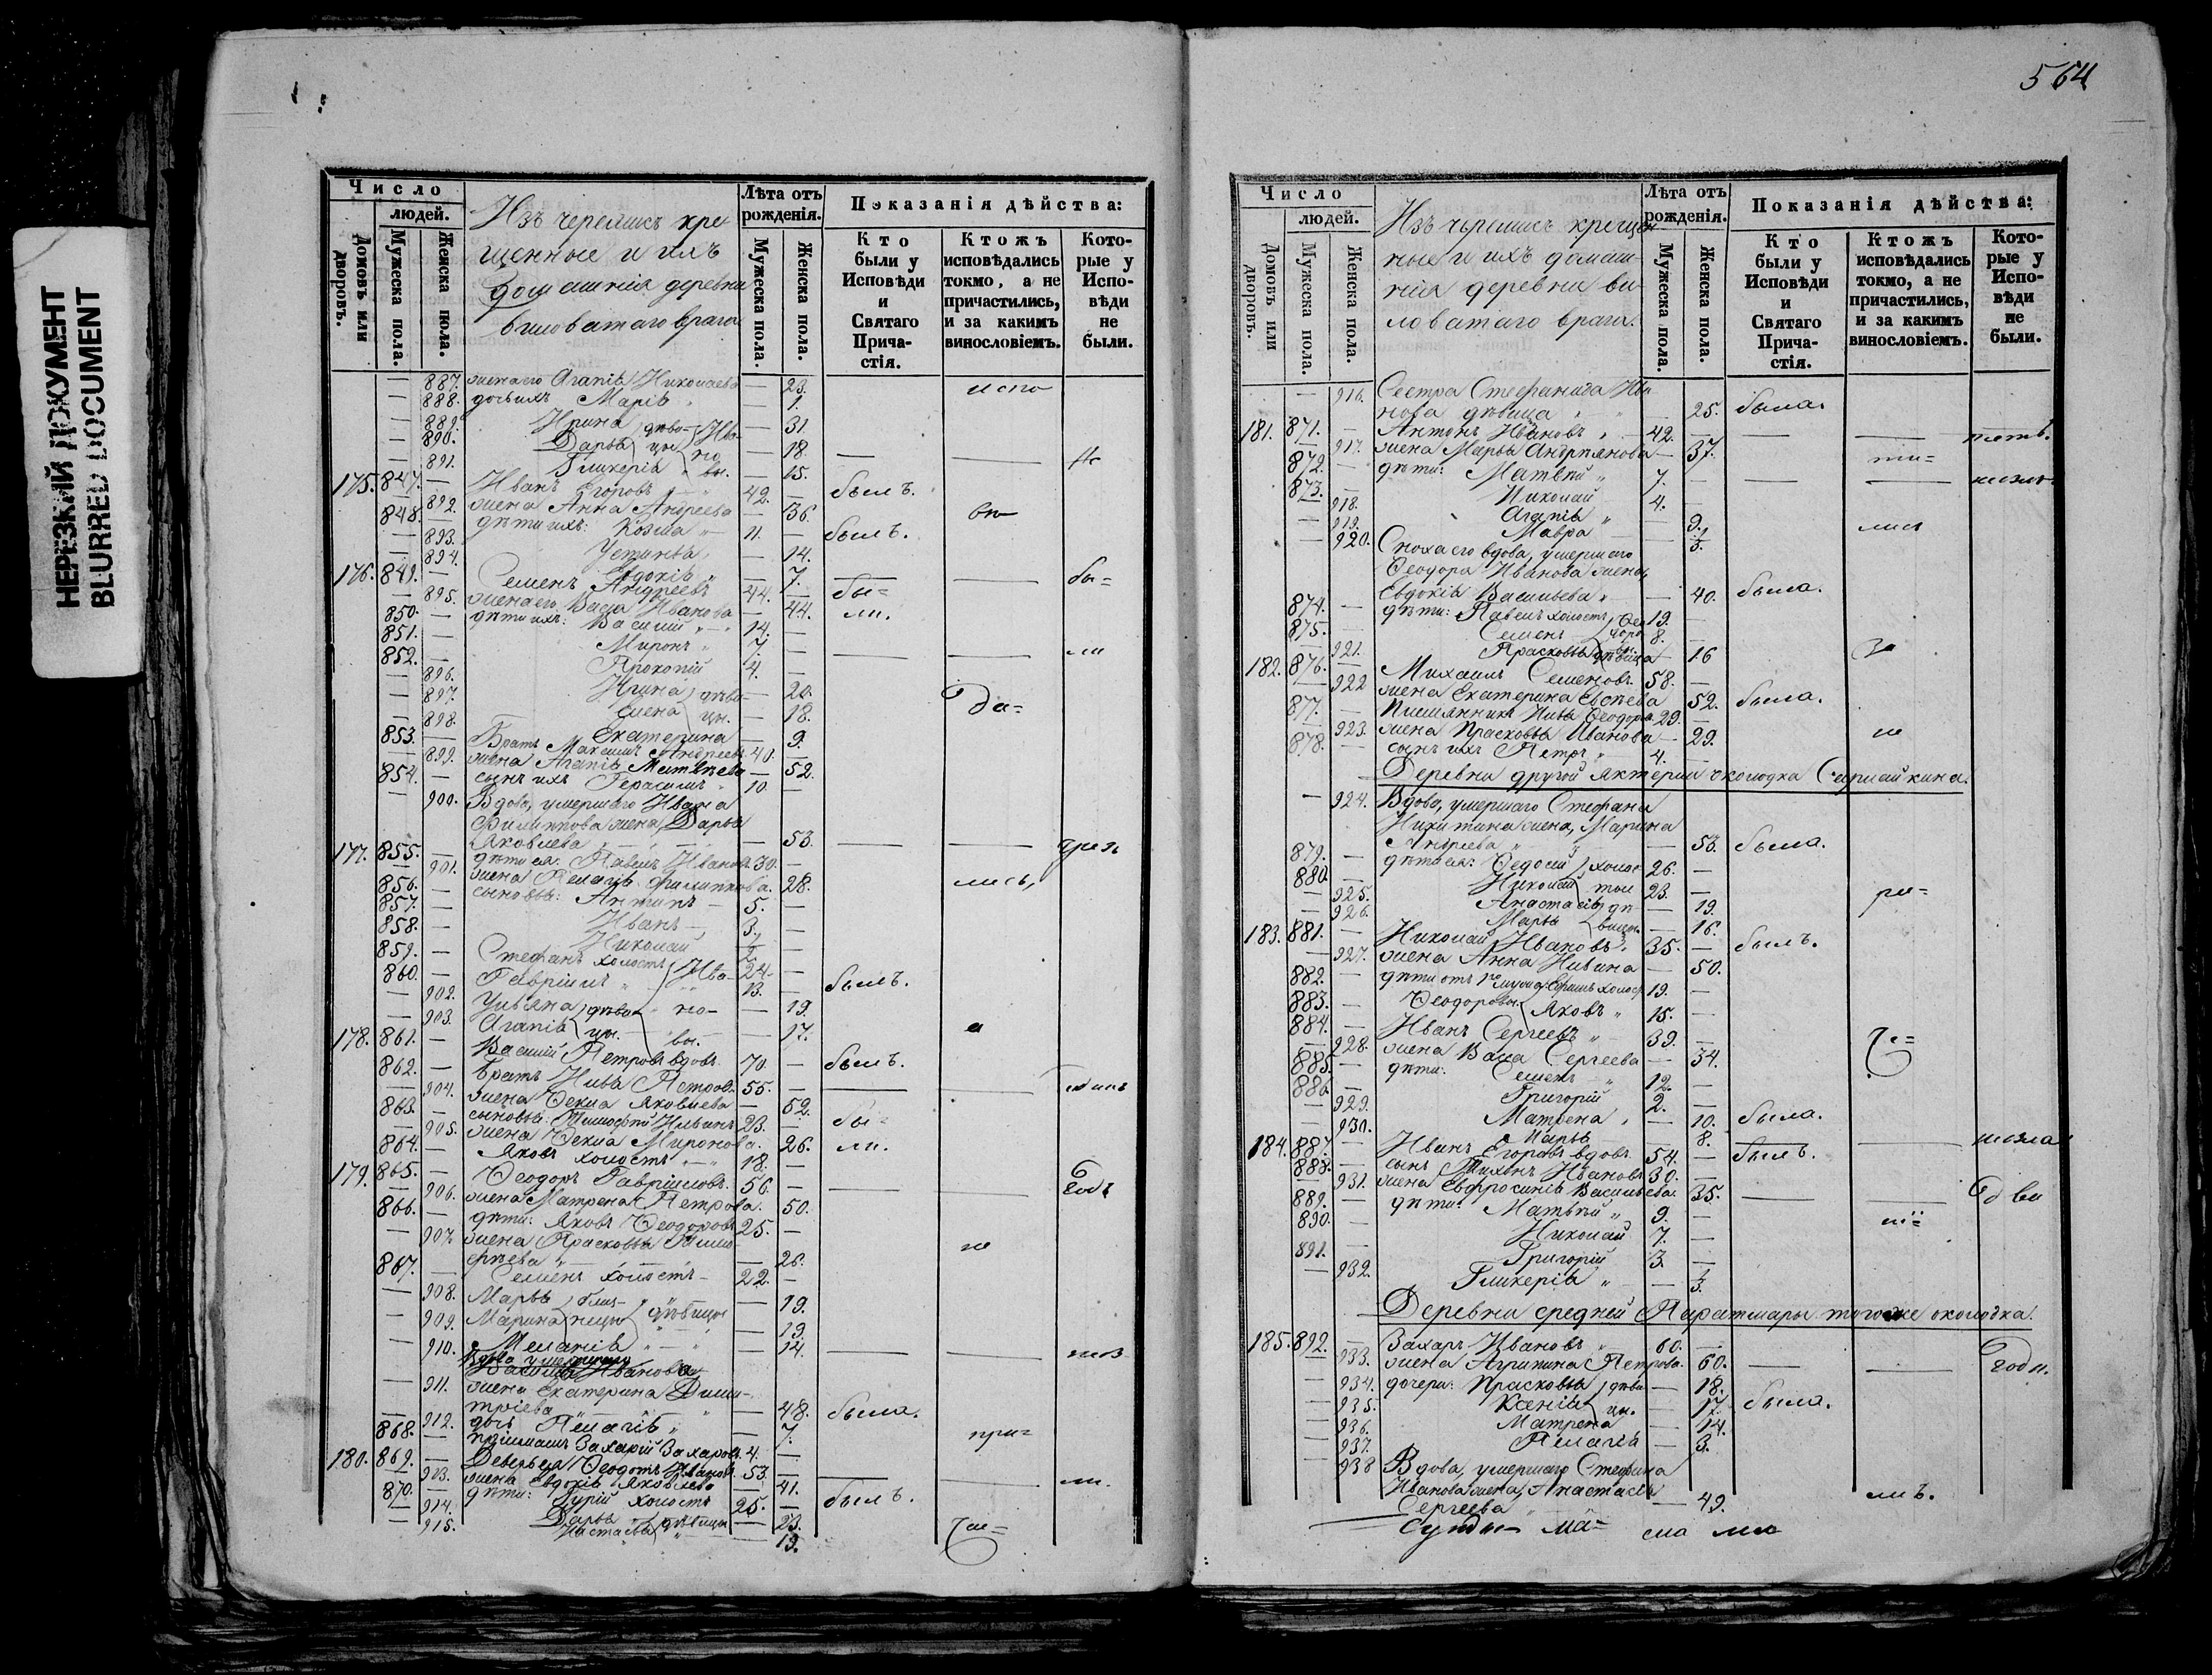 НЕРЕЗКИЙ ДОКУМЕНТ
BLURRED DOCUMENT
Число
людей.
Домовъ или дворовъ.
Мужеска пола.
Женска пола.
Изъ черемисъ кре
щенные и ихъ
домашнія деревни
виловатаго врага
Лѣта отъ рожденія.
Мужеска пола.
Женска пола.
Показанія дѣйства:
Кто были у Исповѣди и Святаго Прича-стія.
Ктожъ исповѣдались токмо, а не причастились, и за какимъ винословіемъ.
Кото-рые у Испо-вѣди не были.
— 887. жена его Агапія Николаева — 23. испо
— 888. дочь ихъ Марія — 1.
— 889. Ирина — 31.
— 890. Дарья — 18.
— 891. Гликерія — 15.
175. 847. — Иванъ Егоровъ 42. — былъ.
892. жена Анна Андреева — 36.
848. — дѣти ихъ: Козма 11. — былъ.
— 893. Устинья — 14.
— 894. Евдокія — 7.
176. 849. — Семенъ Андреевъ 44. — бы=
— 895. жена его Васса Иванова — 44. ли.
850. — дѣти ихъ: Василій 14. —
851. — Миронъ 7. —
852. — Прокопій 4. —
— 896. Ирина дѣви- — 20.
— 897. Елена цы. — 18. да=
— 898. Екатерина — 9.
853. — Братъ Максимъ Андреевъ 40. —
— 899. жена Агапія Матвѣева — 52.
854. — сынъ ихъ Герасимъ 10. —
— 900. Вдова, умершаго Ивана
Филиппова жена, Дарья
Яковлева — 53.
177. 855. — дѣти ея: Павелъ Ивановъ 30. —
— 901. жена Пелагія Филиппова. 28. лись,
856. — сыновья: Антипъ 5. —
857. — Иванъ 3. —
858. — Николай
859. — Стефанъ холостъ Ива- 24. —
860. — Гавріилъ 13. — былъ.
— 902. Ульяна дѣви- но- — 19.
— 903. Агапія цы. вы. — 17. а
178. 861. — Василій Петровъ вдовъ 70. — былъ.
862. — братъ Илья Петровъ 55. —
— 904. жена Ѳекла Яковлева — 52.
863. — сыновья: Тимофей Ильинъ 23. — бы=
— 905. жена Ѳекла Миронова. 26. ли.
864. — Яковъ холостъ 18. —
179. 865. — Ѳеодоръ Гавриловъ. 56. —
— 906. жена Матрена Петрова. 50.
866. — дѣти: Яковъ Ѳеодоровъ 25. —
— 907. жена Прасковья Тимо-
фѣева — 26. не
867. — Семенъ холостъ 22. —
— 908. Марья — 19.
— 909. Марина — 19.
— 910. Меланія — 14.
Вдова умершаго
Василія Иванова
— 911. жена Екатерина Дими-
тріева — 48. была.
— 912. дочь Пелагія — 7. при=
868. — пріимышъ Захарій Захаровъ 4. —
180. 869. — Ѳеодотъ Ивановъ 53. —
— 913. жена Евдокія Яковлева — 41.
870. — дѣти: Гурій холостъ 25. — былъ.
— 914. Дарья дѣвицы — 23.
— 915. Настасья — 19.
564
Число
людей.
Домовъ или дворовъ.
Мужеска пола.
Женска пола.
Изъ черемисъ крещен
ные и ихъ домаш-
нія деревни ви
ловатаго врага.
Лѣта отъ рожденія.
Мужеска пола.
Женска пола.
Показанія дѣйства:
Кто были у Исповѣди и Святаго Прича-стія.
Ктожъ исповѣдались токмо, а не причастились, и за какимъ винословіемъ.
Кото-рые у Испо-вѣди не были.
— 916. Сестра Стефанида Ива
нова дѣвица — 25. была.
181. 871. — Антонъ Ивановъ 42. —
— 917. жена Марья Андріянова — 37.
872. — дѣти: Матвѣй 7. —
873. — Николай 4. —
— 918. Агапія — 9.
— 919. Мавра
920. Сноха его вдова, умершаго
Ѳеодора Иванова жена,
Евдокія Васильева — 40. была.
874. — дѣти: Павелъ холостъ 19. —
875. — Семенъ 8. —
— 921. Прасковья дѣвица — 16 за
182. 876. — Михаилъ Семеновъ 58. —
— 922 жена Екатерина — 52. была.
877. — Племянникъ Илья Ѳеодоровъ 29. —
— 923. жена Прасковья Иванова — 29. не
878. — сынъ ихъ Петръ 4. —
Деревни другой околодка
— 924. Вдова, умершаго Стефана
Никитина жена, Марина
Андреева — 53. была.
879. — дѣти ея: Ѳедосій холос 26. —
880. — Николай тые 23. —
— 925. Анастасія дѣ — 19.
— 926. Марья вицы. — 16.
183. 881. — Николай Ивановъ 35. — былъ.
— 927. жена Анна Ильина — 50.
882. — дѣти отъ 1го мужа: холост 19. —
883. — Ѳеодоровы Яковъ 15. —
884. — Иванъ Сергеевъ 39. —
— 928. жена Васса Сергеева — 34.
885. — дѣти: Семенъ 12. —
886. — Григорій 2. —
— 929. Матрена — 10. была.
— 930. Марья — 8.
184. 887. — Иванъ Егоровъ вдовъ. 54. — былъ.
888. — сынъ Тихонъ Ивановъ 30. —
— 931. жена Евфросинія Васильева. 35.
889. — дѣти: Матвѣй 9. —
890. — Николай 7. —
891. — Григорій 3. —
— 932. Гликерія
Деревни средней Паратмары тогоже околодка.
185. 892. — Захаръ Ивановъ 60. —
— 933. жена Агрипина Петрова. 60.
— 934. дочери: Прасковья дѣви — 18.
— 935. Ксенія цы. — 17. была.
— 936. Матрена — 14.
— 937. Пелагія — 3.
— 938 Вдова, умершаго Стефана
Иванова жена, Анастасія
Сергеева — 49.